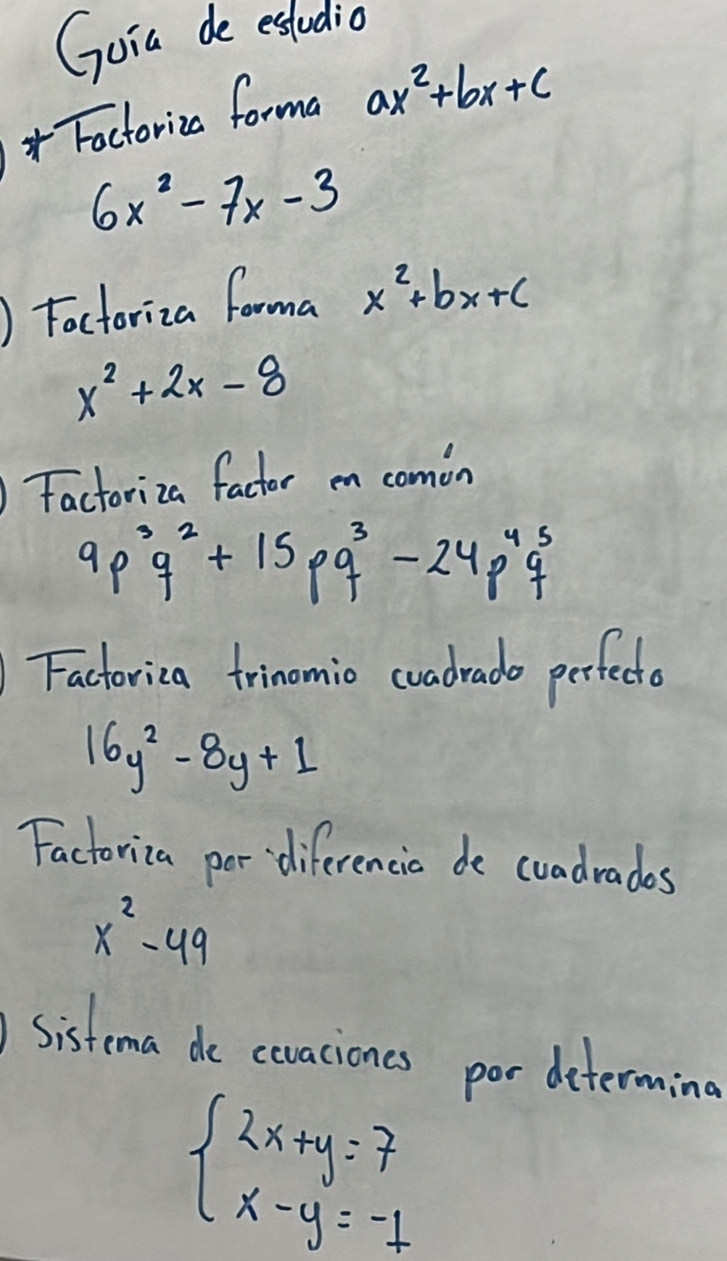 Guía de estudio
) * Factoriza forma ax²+bx+c
6x² - 7x - 3
) Factoriza forma x²+bx+c
x² + 2x - 8
) Factoriza factor en común
9p³q² + 15pq³ - 24p⁴q⁵
) Factoriza trinomio cuadrado perfecto
16y² - 8y + 1
Factoriza por diferencia de cuadrados
x² - 49
) Sistema de ecuaciones por determina
{ 2x + y = 7
x - y = -1